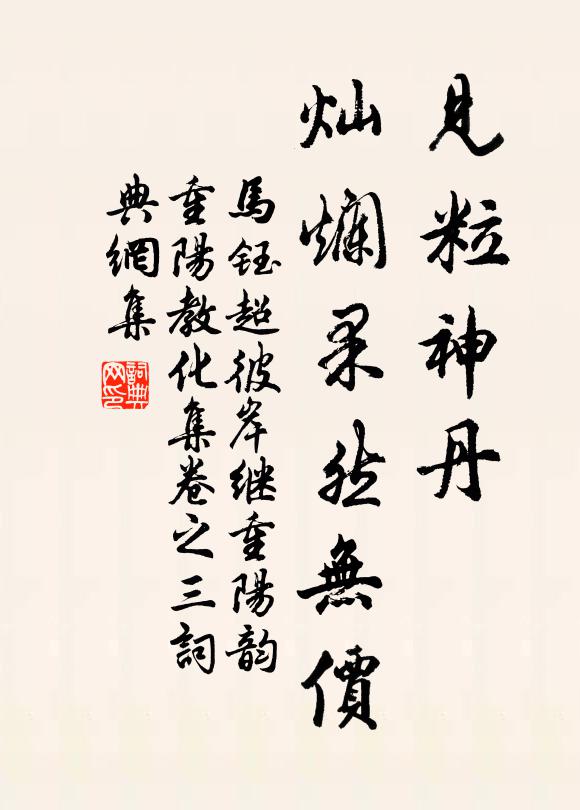 見粒神丹
灿爛果然無價
馬鈺超彼岸继重陽韵
重陽教化集卷之三詞
典網集
詞典网印